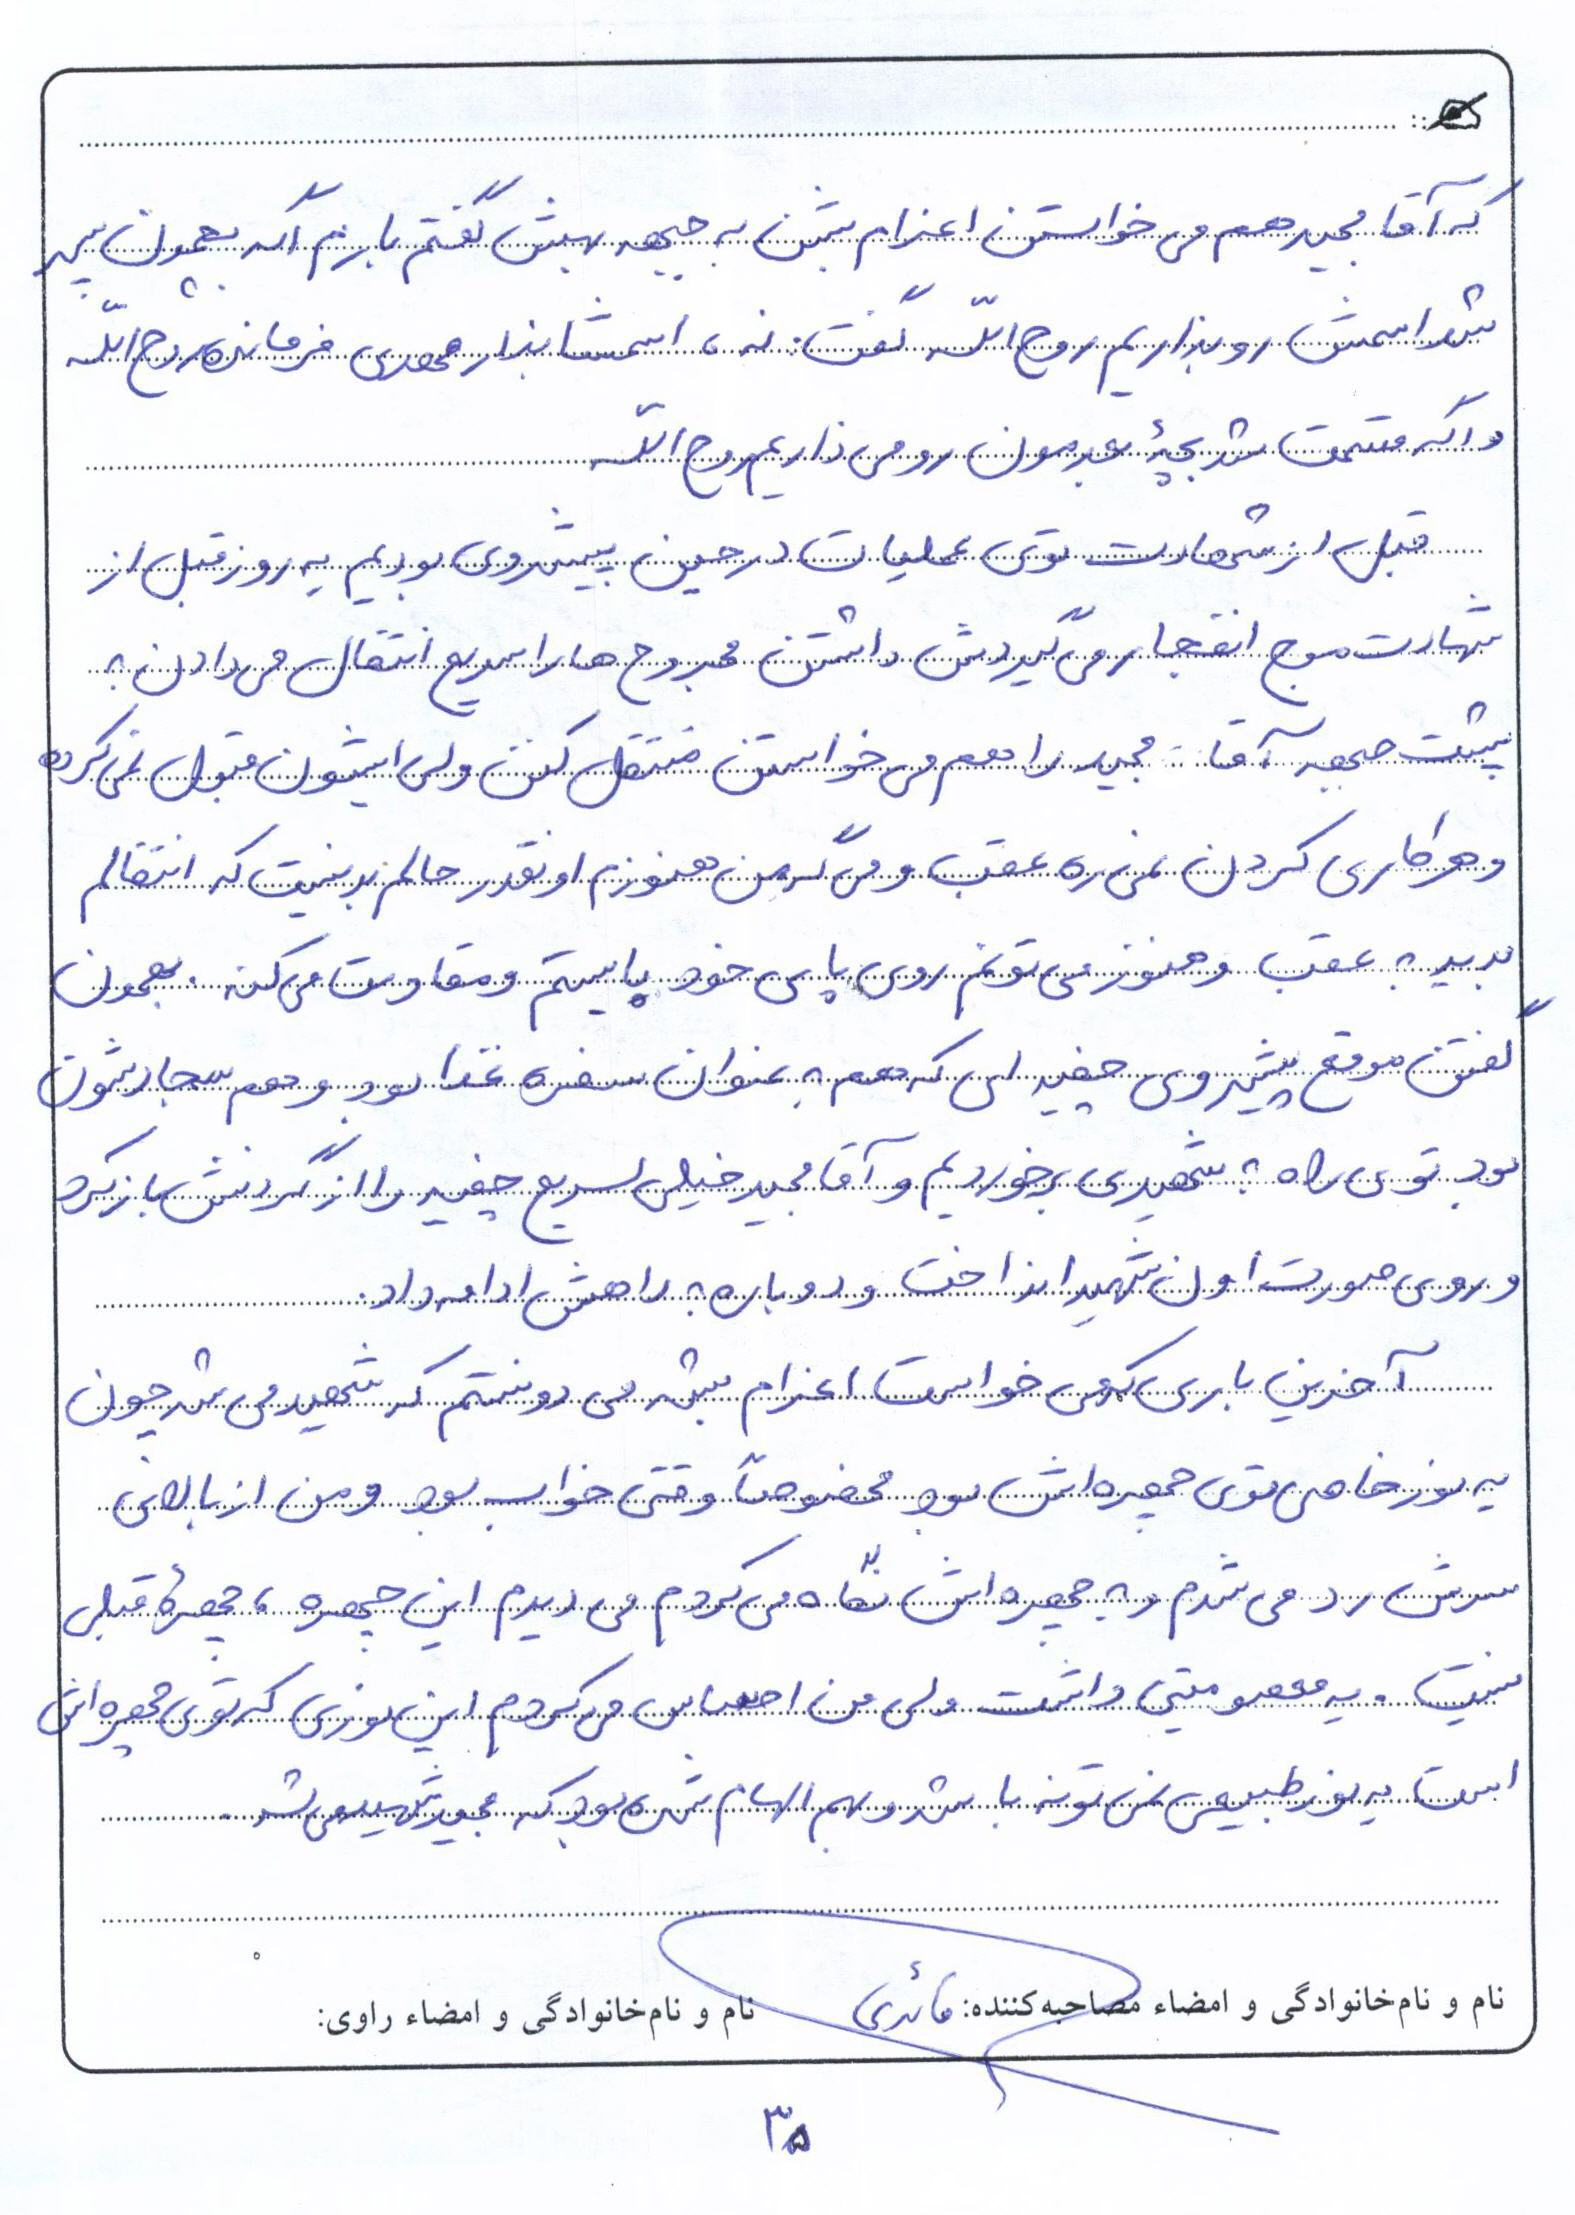 که آقا مجید هم می خواستن اعزام بشن به جبهه بهش گفتم بازم اگه بچمون پسر
شد اسمش رو بذاریم روح الله گفت: نه، اسمشا بذار مهدی فرمانده روح الله
و اگه قسمت شد بچهٔ بعدمون رو می ذاریم روح الله
قبل از شهادت توی عملیات در حین پیشروی بودیم یه روز قبل از
شهادت موج انفجار می گیردش داشتن مجروح ها را سریع انتقال می دادن به
پشت جبهه آقا مجید را هم می خواستن منتقل کنن ولی ایشون قبول نمی کرده
و هر کاری کردن نمی ره عقب و می گه من هنوزم اونقدر حالم بد نیست که انتقالم
بدید به عقب و هنوز می تونم روی پای خود بایستم و مقاومت می کنه. بهمون
گفتن موقع پیشروی چفیه ای که هم به عنوان سفره غذا بود و هم سجادشون
بود توی راه به شهیدی برخوردیم و آقا مجید خیلی سریع چفیه را از گردنش باز کرد
و روی صورت اون شهید انداخت و دوباره به راهش ادامه داد.
آخرین باری که می خواست اعزام بشه می دونستم که شهید می شد چون
یه نور خاصی توی چهره اش بود مخصوصاً وقتی خواب بود و من از بالای
سرش رد می شدم و به چهره اش نگاه می کردم می دیدم این چهره، چهرهٔ قبلی
نیست. یه معصومیتی داشت ولی من احساس می کردم این نوری که توی چهره اش
است یه نور طبیعی نمی تونه باشد و بهم الهام شده بود که مجید شهید می شد.
نام و نام‌خانوادگی و امضاء مصاحبه‌کننده: قائدی نام و نام‌خانوادگی و امضاء راوی:
۳۵